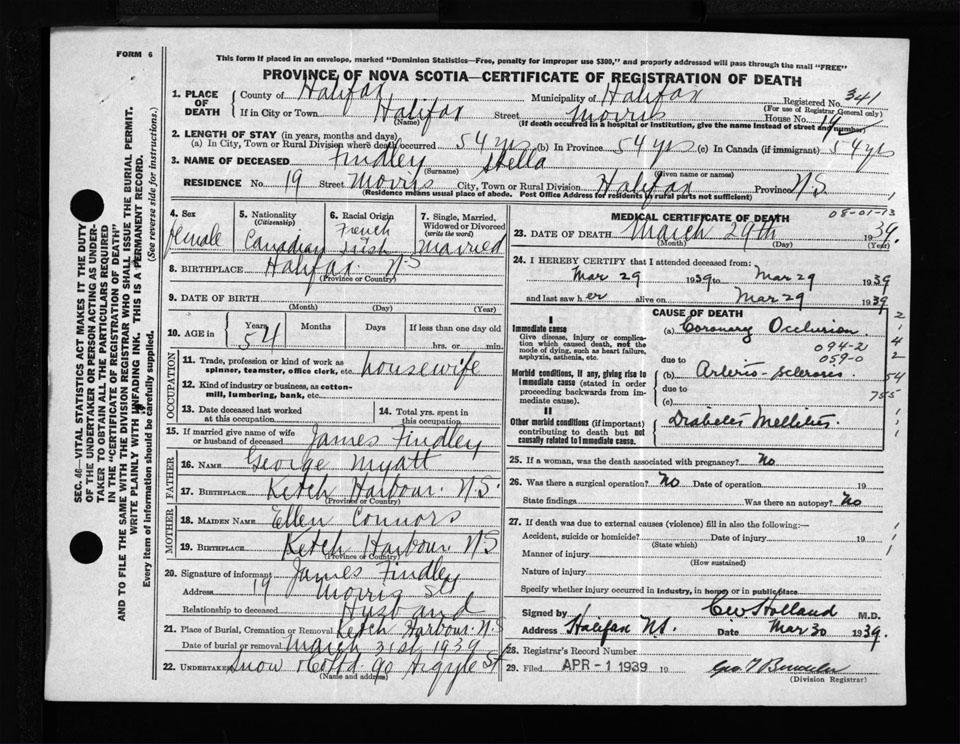 FORM 6
This form if placed in an envelope, marked "Dominion Statistics—Free, penalty for improper use $300," and properly addressed will pass through the mail "FREE"
PROVINCE OF NOVA SCOTIA—CERTIFICATE OF REGISTRATION OF DEATH
SEC. 46—VITAL STATISTICS ACT MAKES IT THE DUTY
OF THE UNDERTAKER OR PERSON ACTING AS UNDER-
TAKER TO OBTAIN ALL THE PARTICULARS REQUIRED
IN THE "CERTIFICATE OF REGISTRATION OF DEATH"
AND TO FILE THE SAME WITH THE DIVISION REGISTRAR WHO SHALL ISSUE THE BURIAL PERMIT.
WRITE PLAINLY WITH UNFADING INK. THIS IS A PERMANENT RECORD.
Every item of information should be carefully supplied. (See reverse side for instructions.)
1. PLACE OF DEATH County of Halifax Municipality of Halifax Registered No. 341
(For use of Registrar General only)
If in City or Town Halifax Street Morris House No. 19
(Name) (If death occurred in a hospital or institution, give the name instead of street and number)
2. LENGTH OF STAY (in years, months and days)
(a) In City, Town or Rural Division where death occurred 54 yrs (b) In Province 54 yrs (c) In Canada (if immigrant) 54 yrs
3. NAME OF DECEASED Findley Stella
(Surname) (Given name or names)
RESIDENCE No. 19 Street Morris City, Town or Rural Division Halifax Province NS
(Residence means usual place of abode. Post Office Address for residents in rural parts not sufficient)
4. Sex female
5. Nationality (Citizenship) Canadian
6. Racial Origin French Irish
7. Single, Married, Widowed or Divorced (write the word) Married
8. BIRTHPLACE Halifax NS
(Province or Country)
9. DATE OF BIRTH
(Month) (Day) (Year)
10. AGE in Years 54 Months Days If less than one day old
hrs. or min.
OCCUPATION
11. Trade, profession or kind of work as spinner, teamster, office clerk, etc. housewife
12. Kind of industry or business, as cotton-mill, lumbering, bank, etc.
13. Date deceased last worked at this occupation
14. Total yrs. spent in this occupation
15. If married give name of wife or husband of deceased James Findley
FATHER
16. NAME George Myatt
17. BIRTHPLACE Ketch Harbour. N.S.
(Province or Country)
MOTHER
18. MAIDEN NAME Ellen Connors
19. BIRTHPLACE Ketch Harbour NS
(Province or Country)
20. Signature of informant James Findley
Address 19 Morris St
Relationship to deceased Husband
21. Place of Burial, Cremation or Removal Ketch Harbour. N.S
Date of burial or removal March 31st 1939
22. UNDERTAKER Snow & Co Ltd 90 Argyle St
(Name and address)
MEDICAL CERTIFICATE OF DEATH
08-01-13
23. DATE OF DEATH March 29th 1939
(Month) (Day) (Year)
24. I HEREBY CERTIFY that I attended deceased from:
Mar 29 1939 to Mar 29 1939
and last saw her alive on Mar 29 1939
CAUSE OF DEATH
I
Immediate cause
Give disease, injury or complication which caused death, not the mode of dying, such as heart failure, asphyxia, asthenia, etc.
(a) Coronary Occlusion
094-2
059-0
due to
Morbid conditions, if any, giving rise to immediate cause (stated in order proceeding backwards from immediate cause).
(b) Arterio-sclerosis
due to
(c)
II
Other morbid conditions (if important) contributing to death but not causally related to immediate cause.
Diabetes Mellitus.
25. If a woman, was the death associated with pregnancy? No
26. Was there a surgical operation? No Date of operation 19
State findings Was there an autopsy? No
27. If death was due to external causes (violence) fill in also the following:—
Accident, suicide or homicide? Date of injury 19
(State which)
Manner of injury
(How sustained)
Nature of injury
Specify whether injury occurred in industry, in home, or in public place
Signed by C W Holland M.D.
Address Halifax NS. Date Mar 30 1939.
28. Registrar's Record Number
29. Filed APR -1 1939 19
(Division Registrar)